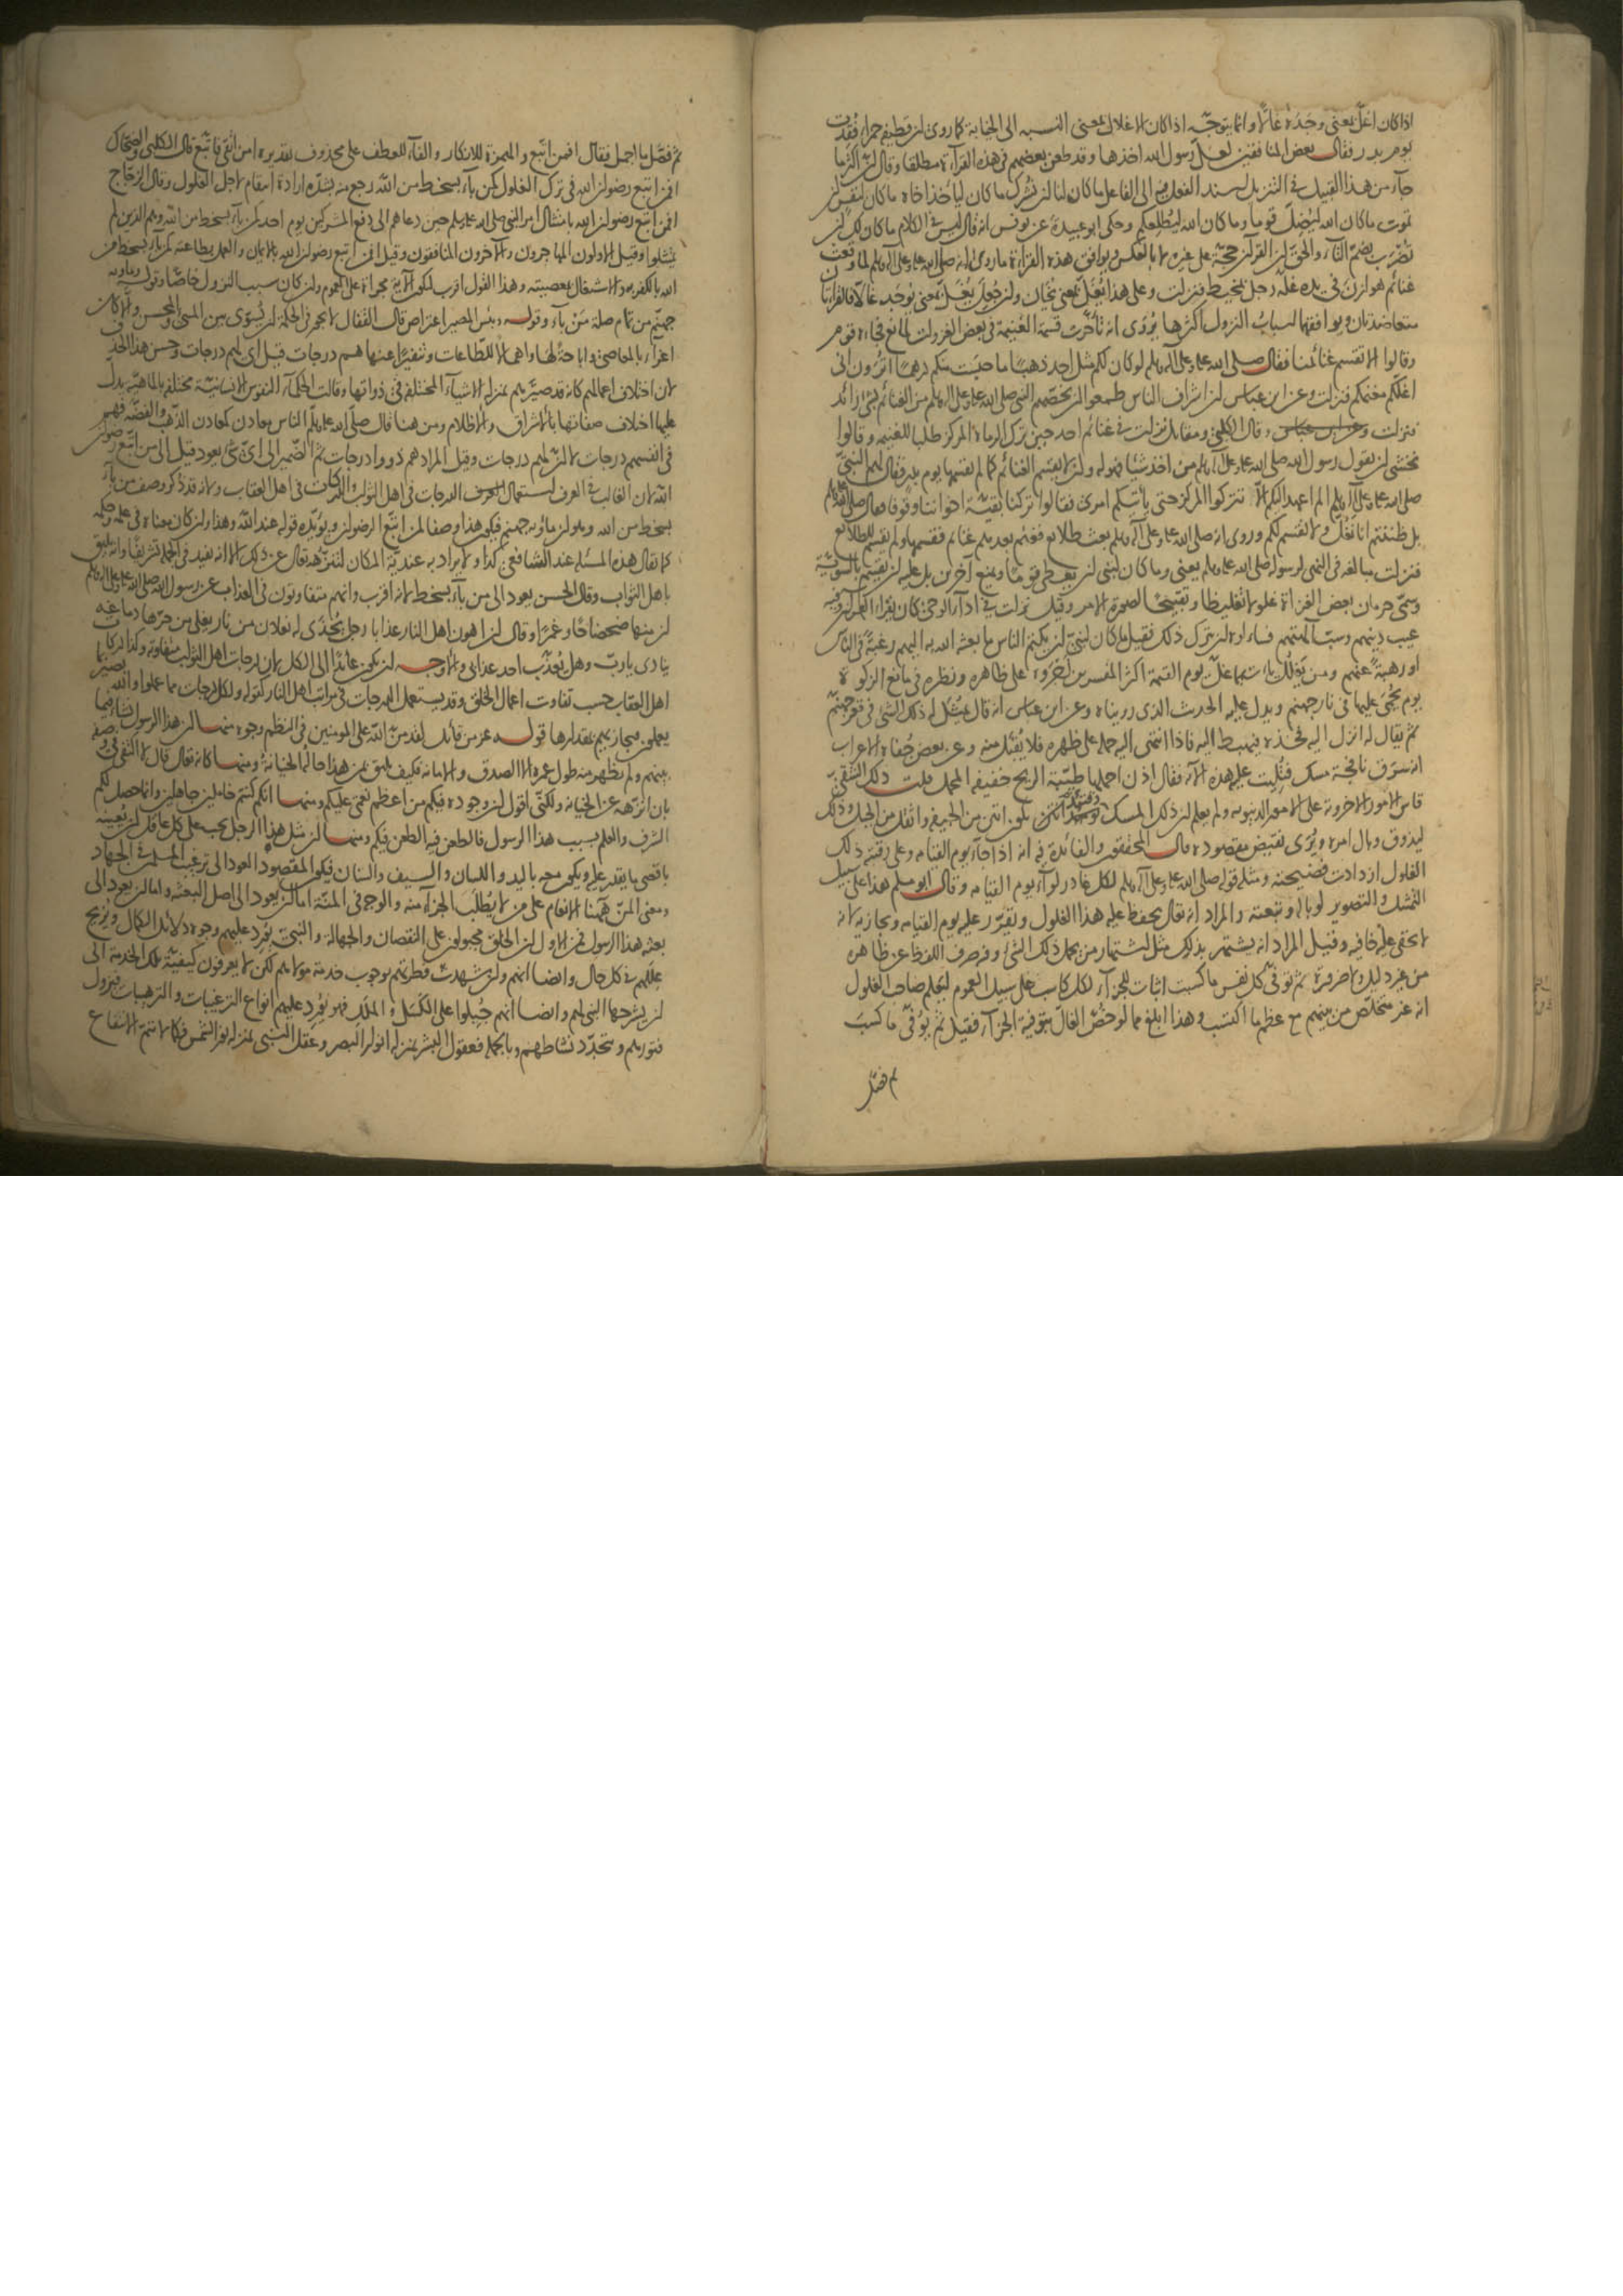 اذا كان اغلّ بمعنى وجده غالّا وانما يتوجّه اذا كان الاغلال بمعنى النسبه الى الخيانة كما روى ان قطيفه حمراء فقدت
يوم بدر فقال بعض المنافقين لعلّ رسول الله اخذها وقد طعن بعضهم فى هذه القراءة مطلقا وقال ان اكثر ما
جآء من هذا القبيل فى التنزيل بسند الفعل فيه الى الفاعل ما كان لنا ان نشرك ما كان ليأخذ اخاه ما كان لنفس ان
تموت ما كان الله ليضلّ قوما وما كان الله ليطلعكم وحكى ابو عبيدة عن يونس انه قال ليس فى الكلام ما كان لك ان
تضرب بضمّ التآء والحق ان القرآن حجّة على غيره لا بالعكس ويوافق هذه القراءة ما روى انه صلى الله عليه وعلى آله وسلم لما وقعت
غنائم هوازن فى يده غلّه رجل بمخيط فنزلت وعلى هذا يُغلّ بمعنى يخان وان جُعل يُغلّ بمعنى يوجد غالّا فالقراءتان
متعاضدتان ويوافقهما اسباب النزول اكثرها يُروى انه تأخّرت قسمة الغنيمة فى بعض الغزوات لمانع فجاءه قوم
وقالوا الا تقسم غنائمنا فقال صلى الله عليه وعلى آله وسلم لو كان لكم مثل احد ذهبًا ما حبست منكم درهمًا اترون انى
اغلّكم مغنمكم فنزلت وعن ابن عباس ان اشراف الناس طمعوا ان يخصّهم النبى صلى الله عليه وعلى آله وسلم من الغنائم بشئ زائد
فنزلت وقال الكلبى ومقاتل نزلت فى غنائم احد حين ترك الرماة المركز طلبا للغنيمه وقالوا
نخشى ان يقول رسول الله صلى الله عليه وعلى آله وسلم من اخذ شيئا فهو له وان لا يقسم الغنائم كما لم يقسمها يوم بدر فقال لهم النبىّ
صلى الله عليه وعلى آله وسلم الم اعهد اليكم الّا تتركوا المركز حتى يأتيكم امرى فقالوا تركنا بقيّة اخواننا وقوفا فقال صلى الله عليه وسلم
بل ظننتم انا نغلّ ولا نقسم لكم وروى انه صلى الله عليه وعلى آله وسلم بعث طلائع فغنم بعدهم غنائم فقسمها ولم يقسم للطلائع
فنزلت مبالغه فى النهى لرسوله صلى الله عليه وسلم يعنى وما كان لنبى ان يعطى قومًا ويمنع آخرين بل عليه ان يقسم بالسويّة
وسمّى حرمان بعض الغزاة غلولا تغليظا وتقبيحًا لصورة الامر وقيل نزلت فى ادآء الوحى كان يقرأ القرآن وفيه
عيب دينهم وسبّ آلهتهم فسألوه ان يترك ذلك فقيل ما كان لنبىّ ان يكتم الناس ما بعثه الله به اليهم رغبةً فى الناس
او رهبةً عنهم ومن يغلل يأت بما غلّ يوم القيمة اكثر المفسرين اجروه على ظاهره ونظره فى مانع الزكوة
يوم يحمى عليها فى نار جهنم ويدل عليه الحديث الذى رويناه وعن ابن عباس انه قال يمثل له ذلك الشئ فى قعر جهنّم
ثم يقال له انزل اليه فخذه فيهبط اليه فاذا انتهى اليه حمله على ظهره فلا يُقبل منه وعن بعض جُفاة الاعراب
انه سرق نافجة مسك فتُليت عليه هذه الآيه فقال اذن احملها طيّبة الريح خفيفة المحمل قلت ذلك الشقىّ
قاس الامور الاخروية على الامور الدنيويه ولم يعلم ان ذلك المسك يكون انتن من الجيفه واثقل من الجبل وذلك
ليذوق وبال امره ويُرى نقيض مقصوده قال المحققون والفائدة فيه انه اذا جآء يوم القيامه وعلى رقبته ذلك
الغلول ازدادت فضيحته ومثله قوله صلى الله عليه وعلى آله وسلم لكل غادر لوآء يوم القيامه وقال ابو مسلم هذا على سبيل
التمثيل والتصوير لوباله وتبعته والمراد انه تعالى يحفظ عليه هذا الغلول ويقرّر عليه يوم القيامه ويجازيه لانه
لا يخفى عليه خافيه وقيل المراد انه يشتهر بذلك مثل اشتهار من يحمل ذلك الشئ وفيه صرف اللفظ عن ظاهره
من غير دليل ولا ضرورة ثم توفّى كل نفس ما كسبت اثبات للجزآء لكل كاسب على سبيل العموم ليعلم صاحب الغلول
انه غير متخلّص من بينهم مع عظم ما اكتسب وهذا ابلغ مما لو خصّ الغالّ بتوفية الجزآء فقيل ثم يُوفّى ما كسب
ثم فصّل
ثم فصّل ما اجمل فقال افمن اتّبع والهمزة للانكار والفآء للعطف على محذوف تقديره امن اتّقى فاتّبع قال الكلبى والضحّاك
افمن اتبع رضوان الله فى ترك الغلول كمن بآء بسخط من الله رجع منه بشدّه ارادة انتقام لاجل الغلول وقال الزجّاج
افمن اتبع رضوان الله بامتثال امر النبى صلى الله عليه وسلم حين دعاهم الى دفع المشركين يوم احد كمن بآء بسخط من الله وهم الذين لم
يمتثلوا وقيل الاولون المهاجرون والآخرون المنافقون وقيل افمن اتبع رضوان الله بالايمان والعمل بطاعته كمن بآء بسخط من
الله بالكفر به والاشتغال بمعصيته وهذا القول اقرب لتكون الآية مجراة على العموم وان كان سبب النزول خاصّا وقوله ومأواه
جهنم من تمام صلة مَن باء وقوله وبئس المصير اعتراض قال القفّال لا يجوز فى الحكمة ان يُسوّى بين المسئ والمحسن والّا كان
اغراء بالمعاصى واباحةً لها واهمالا للطاعات وتنفيرًا عنها هم درجات قيل اى لهم درجات وحسن هذا الحذف
لان اختلاف اعمالهم كأنه قد صيّرهم بمنزله الاشيآء المختلفه فى ذواتها وقالت الحكمآء النفوس الانسانيّة مختلفه بالماهيّه يدلّ
عليها اختلاف صفاتها بالاشراق والاظلام ومن هنا قال صلّى الله عليه وسلم الناس معادن كمعادن الذّهب والفضّة فهم
فى انفسهم درجات لا ان لهم درجات وقيل المراد هم ذووا درجات ثم الضمير الى اىّ شئ يعود قيل الى من اتّبع رضوان
الله لان الغالب فى العرف استعمال الدرجات فى اهل الثواب والدركات فى اهل العقاب ولانه قد ذكر وصف من بآء
بسخط من الله وهو ان مأويه جهنم فيكون هذا وصفا لمن اتبع الرضوان ويؤيّده قوله عند الله وهذا وان كان معناه فى علمه وحكمه
كما يقال هذه المسئله عند الشافعى كذا ولا يراد به عنديّة المكان لتنزّهه تعالى عن ذلك الا انه يفيد فى الجمله تشريفًا وانه يليق
باهل الثواب وقال الحسن يعود الى من بآء بسخط لانه اقرب وانهم متفاوتون فى العذاب عن رسول الله صلى الله عليه وعلى آله وسلم
ان منها ضحضاحًا وغمرًا وقال ان اهون اهل النار عذابا رجل يُحذى له نعلان من نار يغلى من حرّها دماغه
ينادى يا ربّ وهل يُعذّب احد عذابى والاوجه ان يكون عائدًا الى الكل لان درجات اهل الثواب متفاوتة وكذا دركات
اهل العقاب حسب تفاوت اعمال الخلق وقد يستعمل الدرجات فى مراتب اهل النار كقوله ولكل درجات مما عملوا والله بصير بما
يعملون فيجازيهم بمقدارها قوله عز من قائل لقد منّ الله على المومنين فى النظم وجوه منها ان هذا الرسول نشاء فيما
بينهم ولم يظهر منه طول عمره الا الصدق والامانه فكيف يليق بمن هذا حاله الخيانة ومنها كانه تعالى قال لا اكتفى فى وصفه
بان انزّهه عن الخيانه ولكنّى اقول ان وجوده فيكم من اعظم نعمى عليكم ومنها انكم كنتم خاملين جاهلين وانما حصل لكم
الشرف والعلم بسبب هذا الرسول فالطعن فيه الطعن فيكم ومنها ان مثل هذا الرجل يجب على كل عاقل ان يُعينه
باقصى ما يقدر عليه ويكون معه باليد واللسان والسيف والسنان فيكون المقصود العود الى ترغيب المسلمين فى الجهاد
ومعنى المنّ ههنا الانعام على من لا يُطلب الجزآء منه والوجه فى المنّة اما ان يعود الى اصل البعثه واما ان يعود الى
بعثه هذا الرسول فمن الاول ان الخلق مجبولون على النقصان والجهالة والنبىّ يُورد عليهم وجوه دلائل الكمال ويُزيح
عللهم فى كل حال وايضا انهم وان شهدت فطرتهم بوجوب خدمة مولاهم لكن لا يعرفون كيفيّة تلك الخدمة الى
ان يشرحها النبى لهم وايضا انهم جُبلوا على الكسل والملل فهو يُورد عليهم انواع الترغيبات والترهيبات فيزول
فتورهم ويتجدّد نشاطهم وبالجملة فعقول البشر بمنزله انوار البصر وعقل النبى بمنزله نور الشمس فكما لا يتمّ الانتفاع